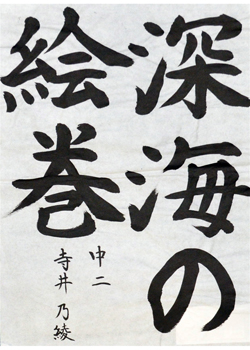 深海の
絵巻
中二
寺井乃綾